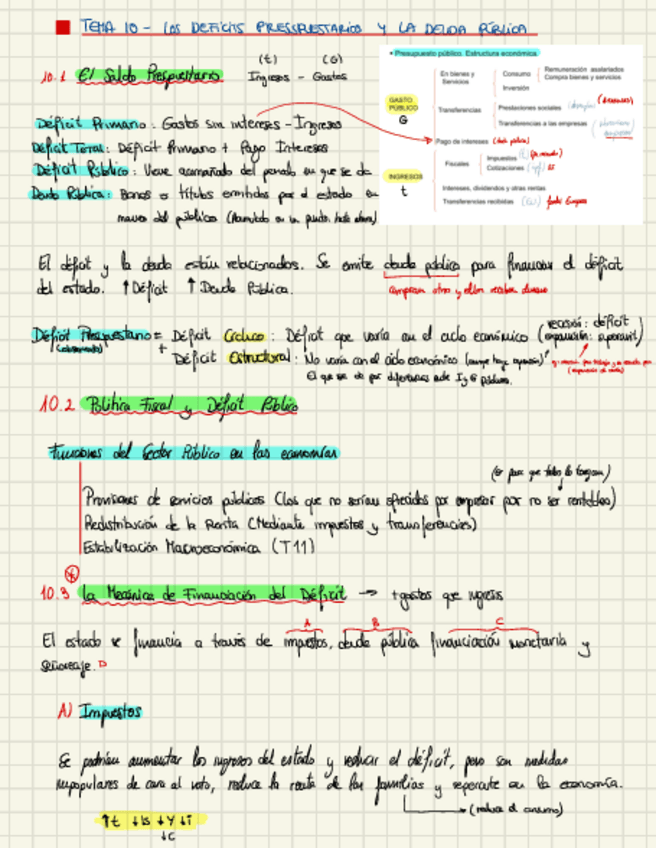 TEMA 10 - LOS DEFICITS PRESUPUESTARIOS Y LA DEUDA PÚBLICA
(t) (G)
10.1 El Saldo Presupuestario Ingresos - Gastos
• Presupuesto público. Estructura económica.
GASTO PÚBLICO G
En bienes y Servicios
Consumo
Remuneración asalariados
Compra bienes y servicios
Inversión
Transferencias
Prestaciones sociales
Transferencias a las empresas
Pago de intereses (deuda pública)
INGRESOS t
Fiscales
Impuestos
Cotizaciones
Intereses, dividendos y otras rentas
Transferencias recibidas
Déficit Primario: Gastos sin intereses - Ingresos
Déficit Total: Déficit Primario + Pago Intereses
Déficit Público: Viene acompañado del periodo en que se da
Deuda Pública: Bonos o títulos emitidos por el estado en
manos del público (Acumulado en un punto, hasta ahora)
El déficit y la deuda están relacionados. Se emite deuda pública para financiar el déficit
del estado. ↑Déficit ↑Deuda Pública.
compran otros y ellos reciben dinero
Déficit Presupuestario = Déficit Cíclico: Déficit que varía con el ciclo económico (recesión: déficit
(observado) expansión: superávit)
+ Déficit Estructural: No varía con el ciclo económico (aunque haya expansión)
El que se da por diferencias entre I y G públicos.
10.2 Política Fiscal y Déficit Público
Funciones del Sector Público en las economías
(G para que todos lo tengan)
Provisiones de servicios públicos (los que no serían ofrecidos por empresas por no ser rentables)
Redistribución de la Renta (Mediante impuestos y transferencias)
Estabilización Macroeconómica (T11)
10.3 La Mecánica de Financiación del Déficit → +gastos que ingresos
A B C
El estado se financia a través de impuestos, deuda pública, financiación monetaria y
señoreaje. D
A) Impuestos
Se podrían aumentar los ingresos del estado y reducir el déficit, pero son medidas
impopulares de cara al voto, reduce la renta de las familias y repercute en la economía.
→ (reduce el consumo)
↑t ↓IS ↓Y ↓i
↓C